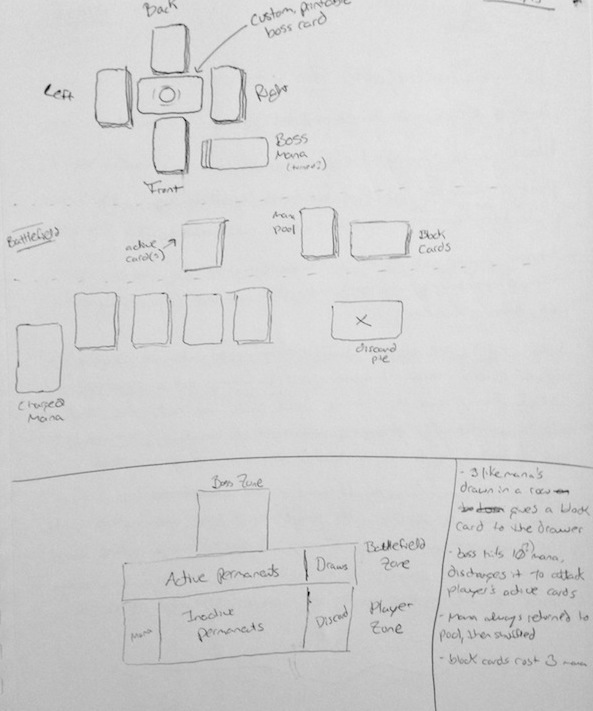 Back
Custom, printable
boss card
Left
Right
Boss
Mana
Front
Battlefield
active
card(s)
Mana
pool
Block
Cards
discard
pile
Charged
Mana
Boss Zone
Battlefield
Zone
Active permanents
Draws
Mana
Inactive
permanents
Discard
Player
Zone
- 3 like mana's
drawn in a row
gives a block
card to the drawer
- boss hits 10 mana,
discharges it to attack
player's active cards
- Mana always returned to
pool, then shuffled
- block cards cost 3 mana